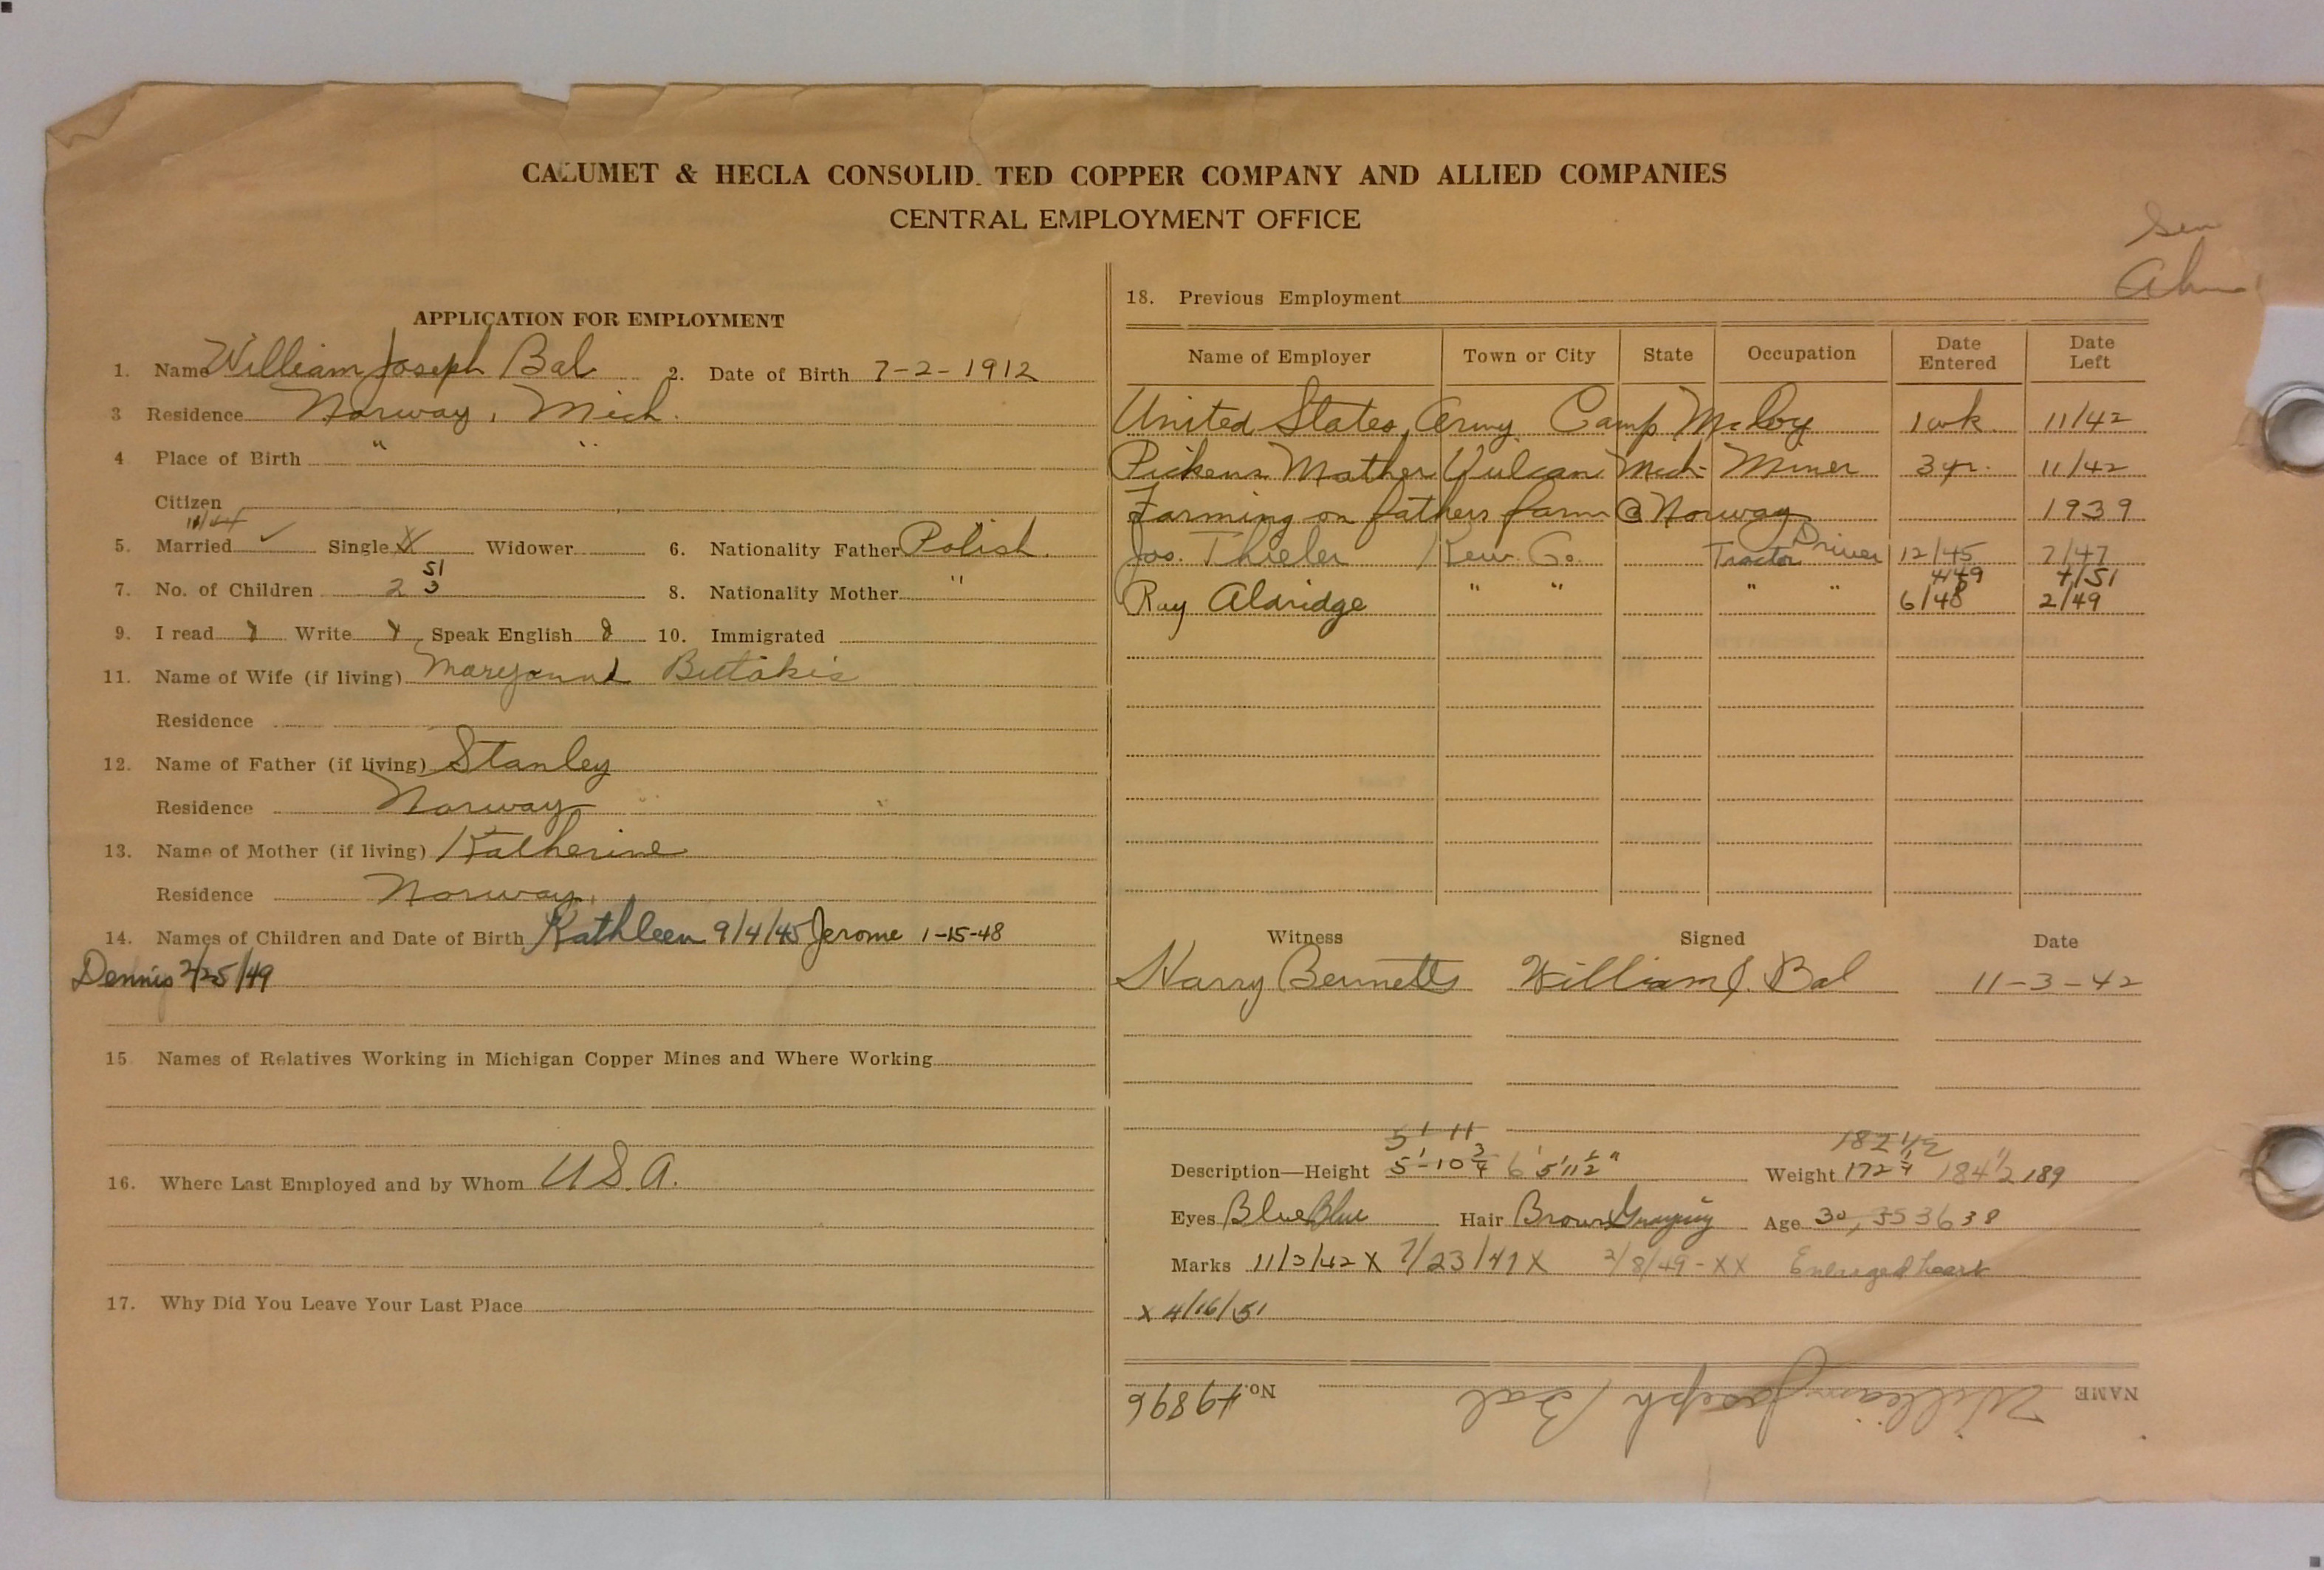 CALUMET & HECLA CONSOLID TED COPPER COMPANY AND ALLIED COMPANIES
CENTRAL EMPLOYMENT OFFICE
APPLICATION FOR EMPLOYMENT
1. Name William Joseph Bal 2. Date of Birth 7-2-1912
3 Residence Norway, Mich.
4 Place of Birth " "
Citizen
11/44
5. Married ✓ Single X Widower 6. Nationality Father Polish.
51
7. No. of Children 2 3 8. Nationality Mother "
9. I read Write Speak English 10. Immigrated
11. Name of Wife (if living)
Residence
12. Name of Father (if living) Stanley
Residence Norway
13. Name of Mother (if living) Katherine
Residence Norway
14. Names of Children and Date of Birth Kathleen 9/4/45 Jerome 1-15-48
Dennis 2/25/49
15 Names of Relatives Working in Michigan Copper Mines and Where Working
16. Where Last Employed and by Whom U.S.A.
17. Why Did You Leave Your Last Place
18. Previous Employment
Name of Employer Town or City State Occupation Date Entered Date Left
United States Army Camp McCoy 1 wk. 11/42
Pickens Mather Vulcan Mich. Miner 3 yr. 11/42
Farming on fathers farm @ Norway 1939
Jos. Thieler Kew. Co. Tractor Driver 12/45 7/47
4/49 4/51
Ray Aldridge " " " " 6/48 2/49
Witness Signed Date
Harry Bennetts William J. Bal 11-3-42
5' 11 182 1/2
Description—Height 5'-10 3/4 6' 5'11 1/2" Weight 172 184 1/2 189
Eyes Blue Blue Hair Brown Graying Age 30, 35 36 38
Marks 11/3/42 X 7/23/47 X 2/8/49-XX Enlarged heart
x 4/16/51
NAME William Joseph Bal No. 49896